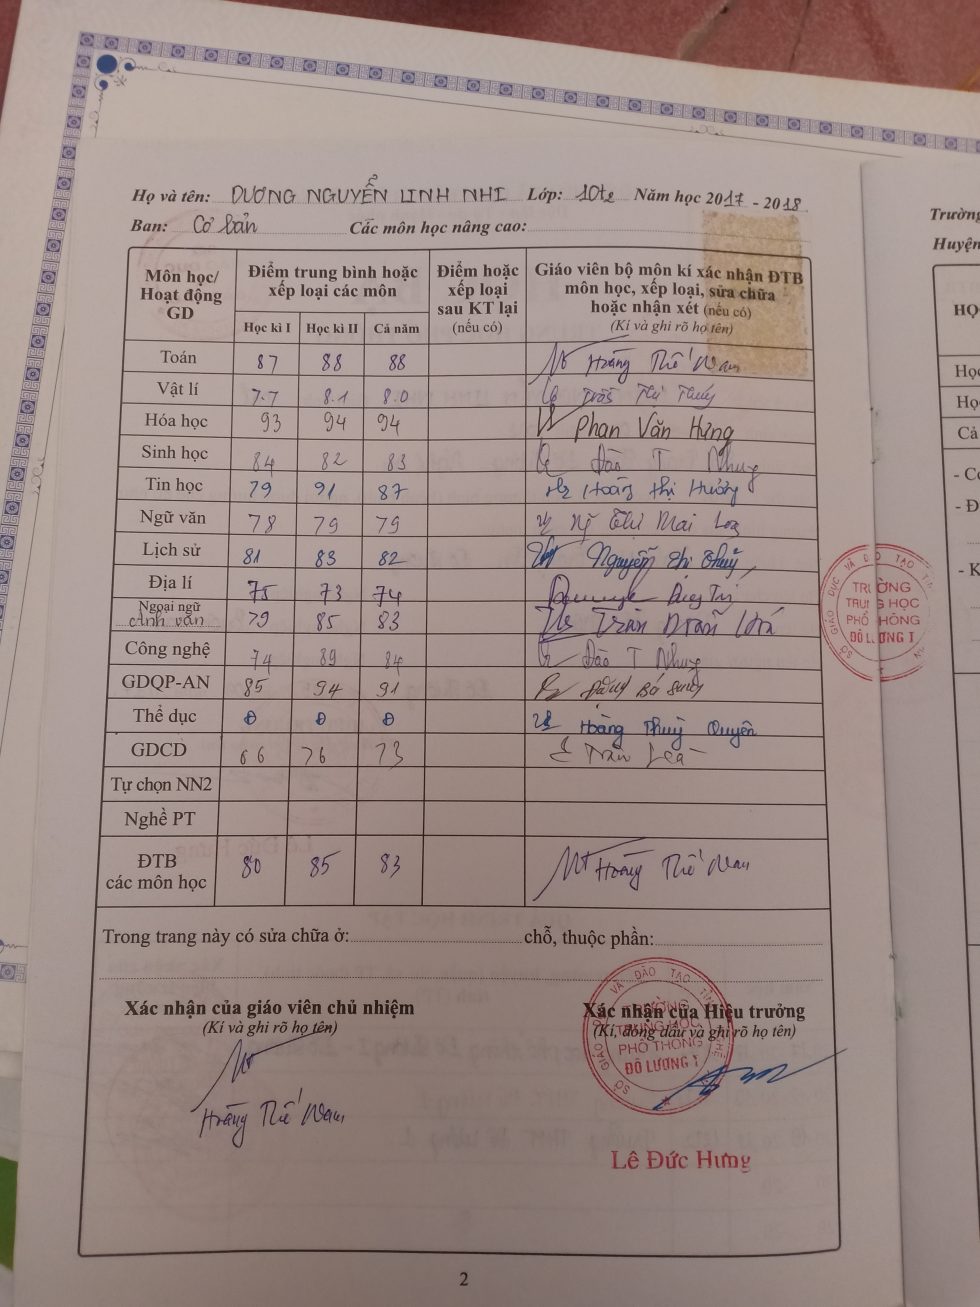 Họ và tên: DƯƠNG NGUYỄN LINH NHI Lớp: 10t2 Năm học 2017 - 2018
Ban: Cơ bản Các môn học nâng cao:
Môn học/ Hoạt động GD
Điểm trung bình hoặc xếp loại các môn
Điểm hoặc xếp loại sau KT lại (nếu có)
Giáo viên bộ môn kí xác nhận ĐTB môn học, xếp loại, sửa chữa hoặc nhận xét (nếu có) (Kí và ghi rõ họ tên)
Học kì I Học kì II Cả năm
Toán 87 88 88 Hoàng Thế Nam
Vật lí 7.7 8.1 8.0 Trần Thị Thúy
Hóa học 93 94 94 Phan Văn Hưng
Sinh học 84 82 83 Đào T Nhung
Tin học 79 91 87 Hoàng Thị Hường
Ngữ văn 78 79 79 Thị Mai
Lịch sử 81 83 82 Nguyễn Thị Thuỷ
Địa lí 75 73 74
Ngoại ngữ
Anh văn 79 85 83 Trần
Công nghệ 74 89 84 Đào T Nhung
GDQP-AN 85 94 91 Đặng Bá
Thể dục Đ Đ Đ Hoàng Thuỳ Quyên
GDCD 66 76 73 Trần
Tự chọn NN2
Nghề PT
ĐTB
các môn học 80 85 83 Hoàng Thế Nam
Trong trang này có sửa chữa ở: chỗ, thuộc phần:
Xác nhận của giáo viên chủ nhiệm
(Kí và ghi rõ họ tên)
Hoàng Thế Nam
Xác nhận của Hiệu trưởng
(Kí, đóng dấu và ghi rõ họ tên)
TRƯỜNG
TRUNG HỌC
PHỔ THÔNG
ĐÔ LƯƠNG I
Lê Đức Hưng
2
TRƯỜNG
TRUNG HỌC
PHỔ THÔNG
ĐÔ LƯƠNG I
Trường
Huyện
Cả